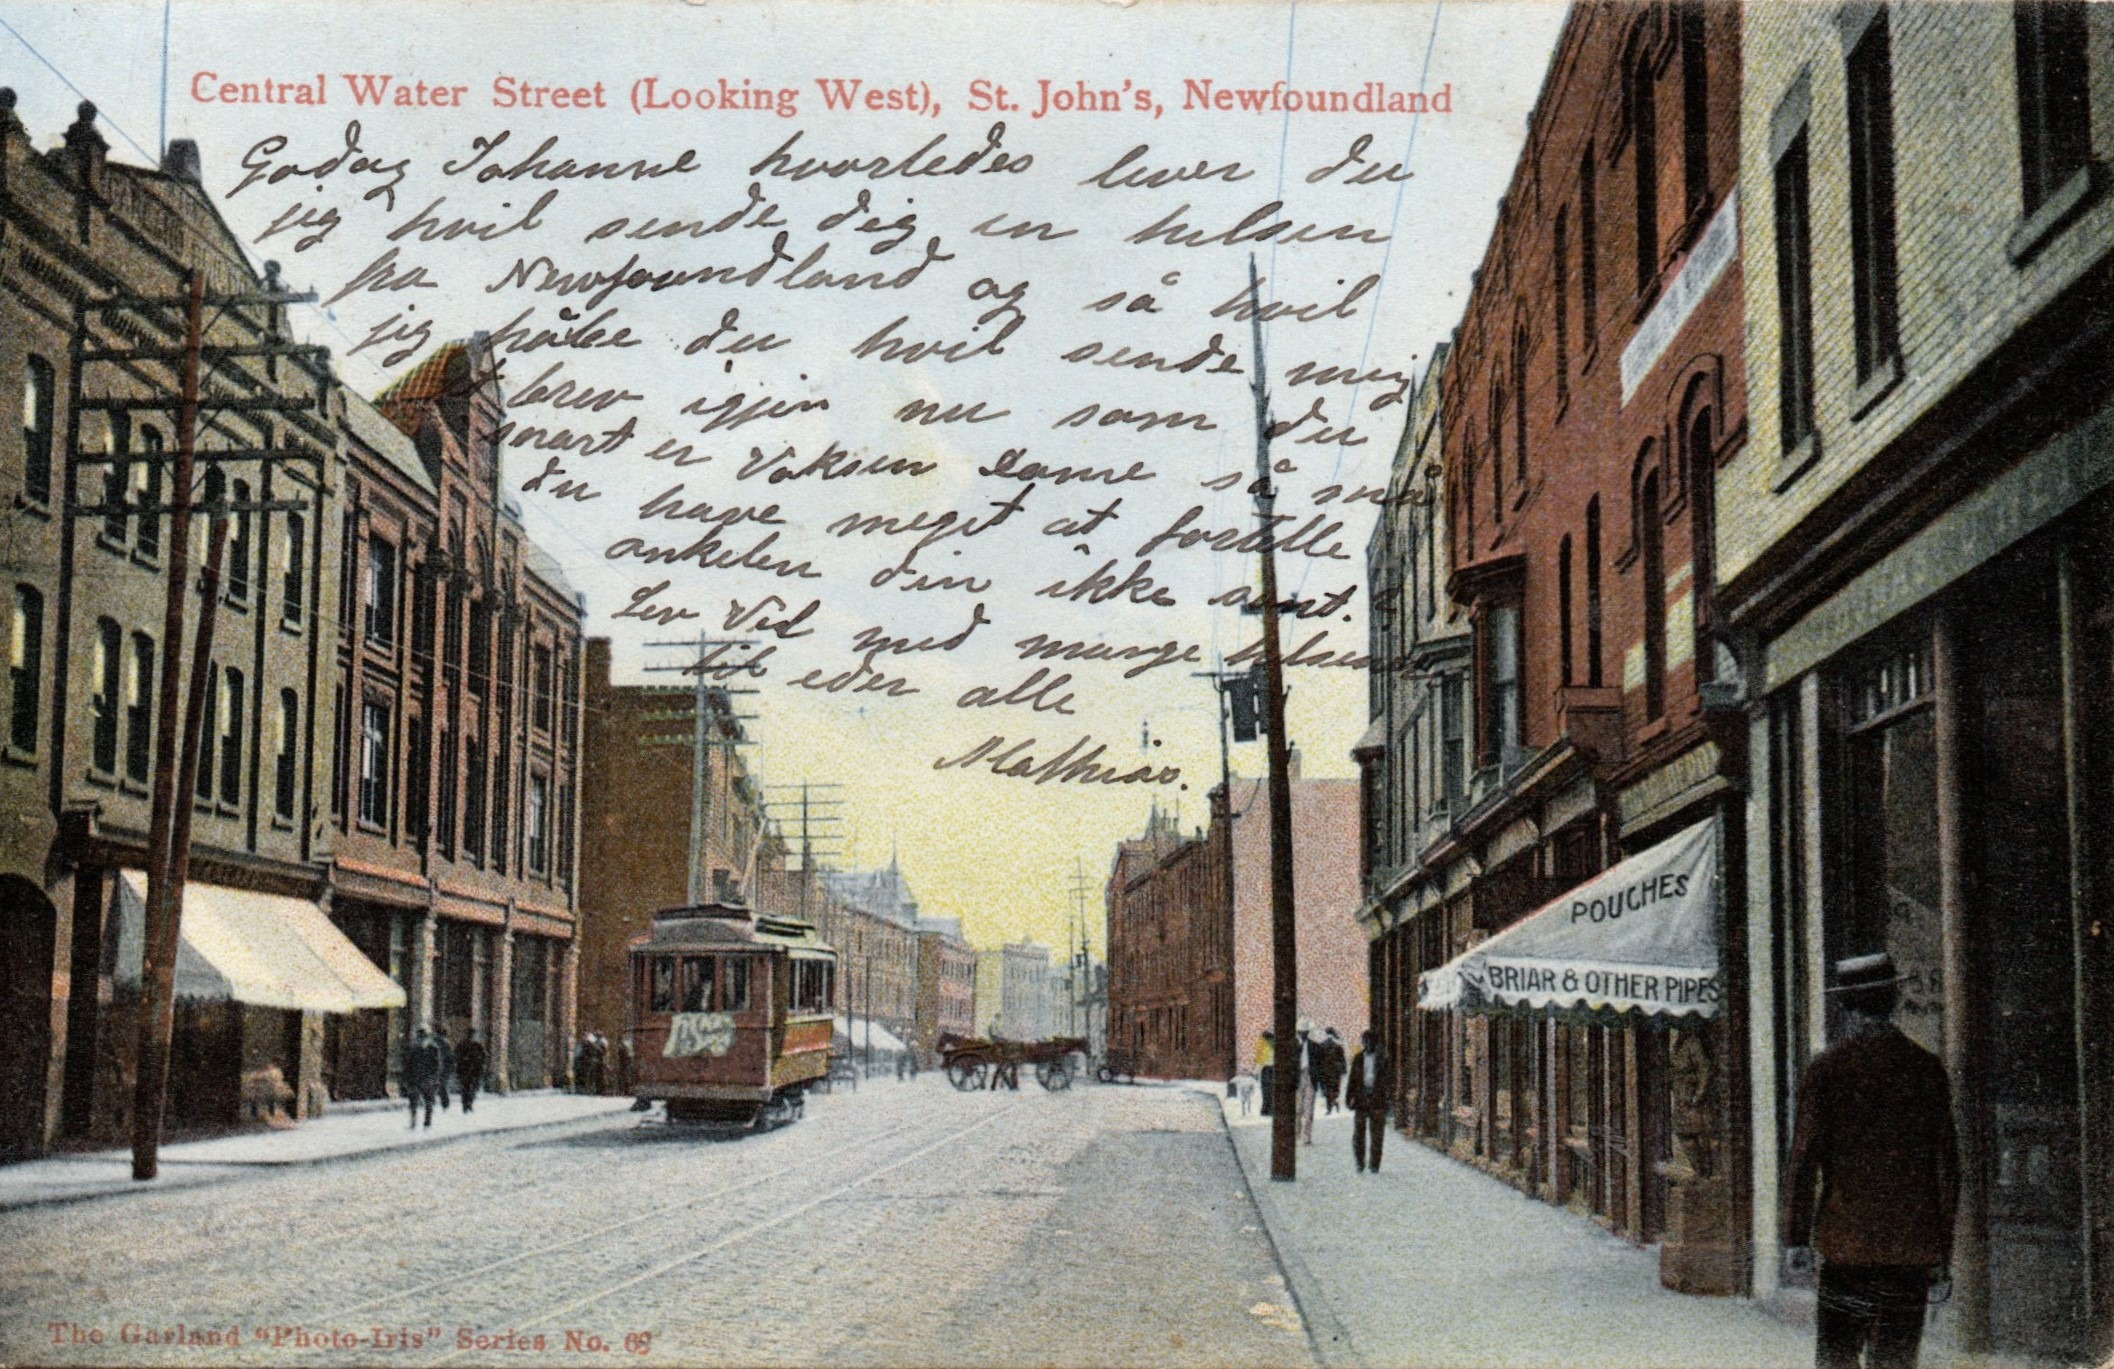 Central Water Street (Looking West), St. John's, Newfoundland
Godag Johanne hvorledes lever du
jeg hvil sende dig en helsen
fra Newfoundland og så hvil
jeg håbe du hvil sende mig
brev igjen nu som du
snart er Voksen Dame så må
du have meget at fortelle
onkelen din ikke sent.
Lev Vel med mange helsener
til eder alle
Mathias.
POUCHES
BRIAR & OTHER PIPES
The Garland "Photo-Iris" Series No. 69